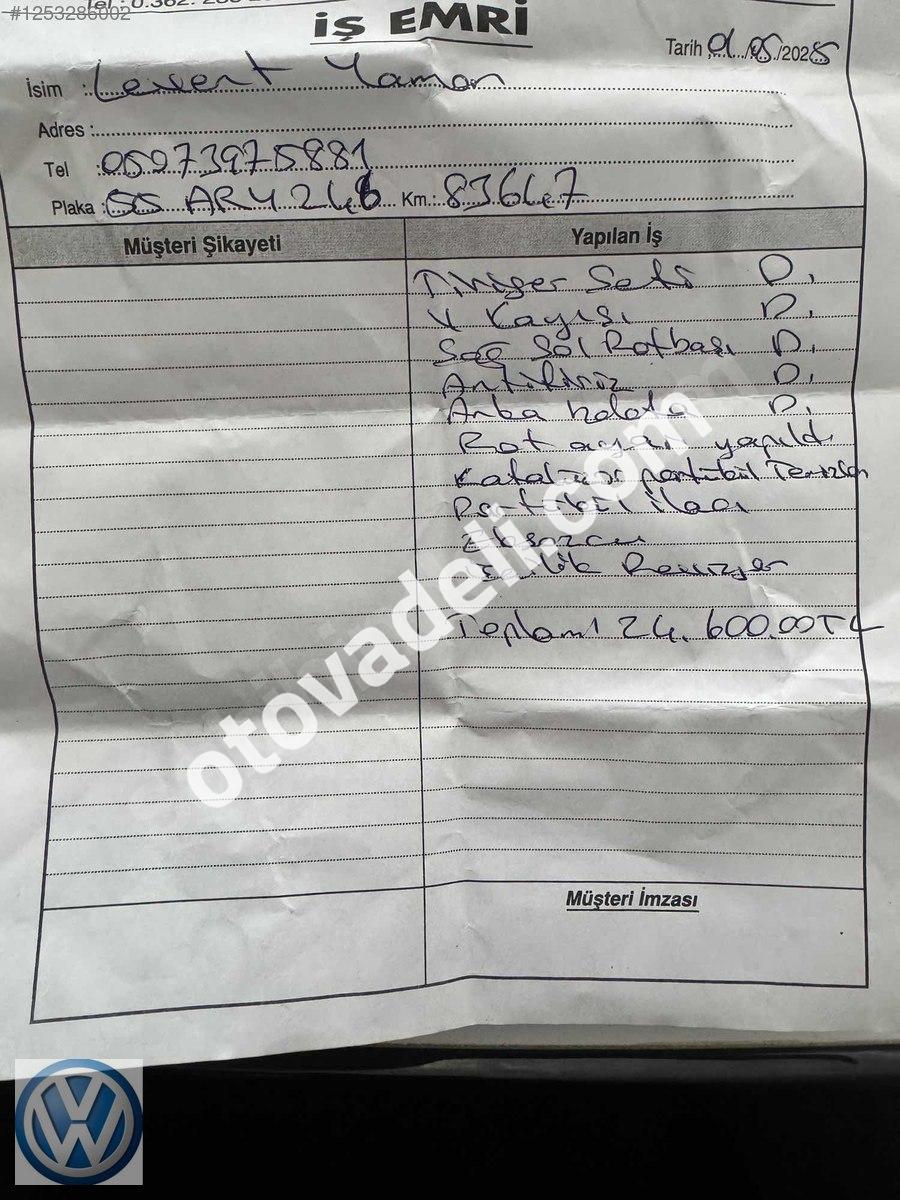 #1253286002
Tel : 0.362.
İŞ EMRİ
Tarih 01/05/2025
İsim : Levent Yaman
Adres :
Tel : 05073975881
Plaka : 55 ARY 246 Km.: 83647
Müşteri Şikayeti
Yapılan İş
Tiriger Seti D.
V Kayışı D.
Sağ Sol Rotbaşı D.
Antifiriz D.
Arka balata D.
Rot ayarı yapıldı
Katalizör partikül
Partikül ilacı
Toplam 24.600.00 TL
Müşteri İmzası
otovadeli.com